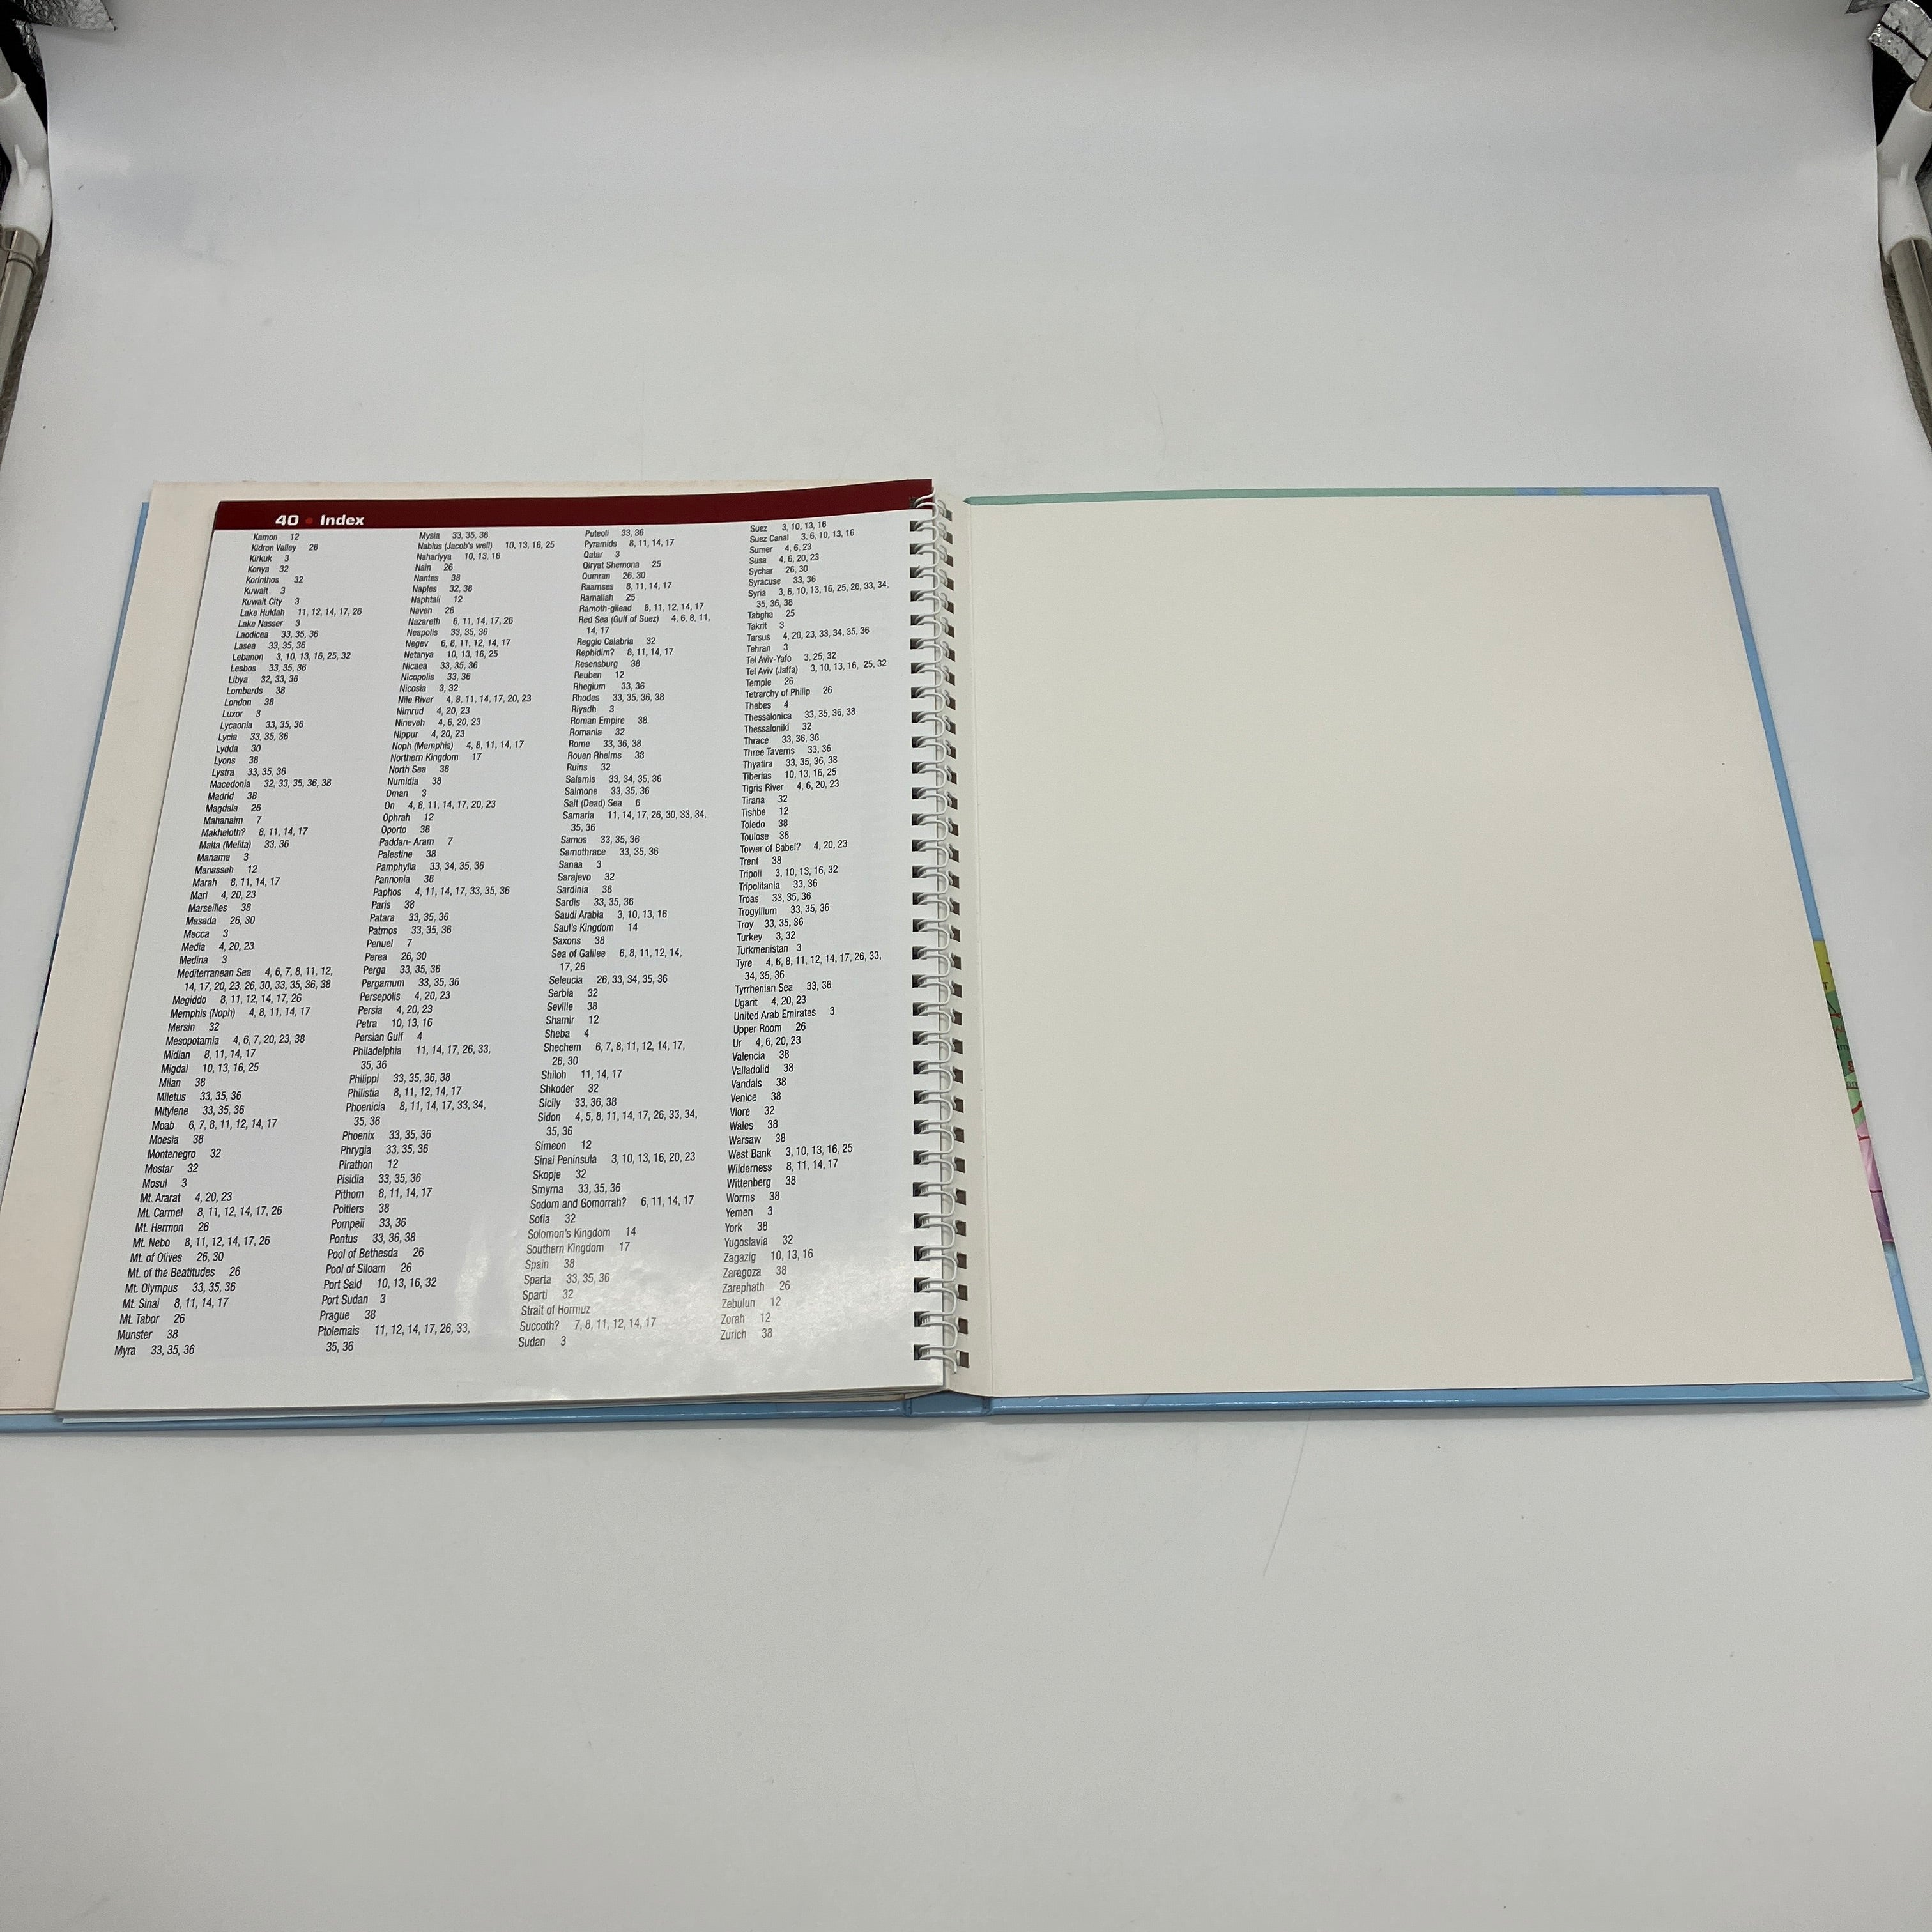 40 • Index
Kamon 12
Kidron Valley 26
Kirkuk 3
Konya 32
Korinthos 32
Kuwait 3
Kuwait City 3
Lake Huldah 11, 12, 14, 17, 26
Lake Nasser 3
Laodicea 33, 35, 36
Lasea 33, 35, 36
Lebanon 3, 10, 13, 16, 25, 32
Lesbos 33, 35, 36
Libya 32, 33, 36
Lombards 38
London 38
Luxor 3
Lycaonia 33, 35, 36
Lycia 33, 35, 36
Lydda 30
Lyons 38
Lystra 33, 35, 36
Macedonia 32, 33, 35, 36, 38
Madrid 38
Magdala 26
Mahanaim 7
Makheloth? 8, 11, 14, 17
Malta (Melita) 33, 36
Manama 3
Manasseh 12
Marah 8, 11, 14, 17
Mari 4, 20, 23
Marseilles 38
Masada 26, 30
Mecca 3
Media 4, 20, 23
Medina 3
Mediterranean Sea 4, 6, 7, 8, 11, 12,
14, 17, 20, 23, 26, 30, 33, 35, 36, 38
Megiddo 8, 11, 12, 14, 17, 26
Memphis (Noph) 4, 8, 11, 14, 17
Mersin 32
Mesopotamia 4, 6, 7, 20, 23, 38
Midian 8, 11, 14, 17
Migdal 10, 13, 16, 25
Milan 38
Miletus 33, 35, 36
Mitylene 33, 35, 36
Moab 6, 7, 8, 11, 12, 14, 17
Moesia 38
Montenegro 32
Mostar 32
Mosul 3
Mt. Ararat 4, 20, 23
Mt. Carmel 8, 11, 12, 14, 17, 26
Mt. Hermon 26
Mt. Nebo 8, 11, 12, 14, 17, 26
Mt. of Olives 26, 30
Mt. of the Beatitudes 26
Mt. Olympus 33, 35, 36
Mt. Sinai 8, 11, 14, 17
Mt. Tabor 26
Munster 38
Myra 33, 35, 36
Mysia 33, 35, 36
Nablus (Jacob's well) 10, 13, 16, 25
Nahariyya 10, 13, 16
Nain 26
Nantes 38
Naples 32, 38
Naphtali 12
Naveh 26
Nazareth 6, 11, 14, 17, 26
Neapolis 33, 35, 36
Negev 6, 8, 11, 12, 14, 17
Netanya 10, 13, 16, 25
Nicaea 33, 35, 36
Nicopolis 33, 36
Nicosia 3, 32
Nile River 4, 8, 11, 14, 17, 20, 23
Nimrud 4, 20, 23
Nineveh 4, 6, 20, 23
Nippur 4, 20, 23
Noph (Memphis) 4, 8, 11, 14, 17
Northern Kingdom 17
North Sea 38
Numidia 38
Oman 3
On 4, 8, 11, 14, 17, 20, 23
Ophrah 12
Oporto 38
Paddan- Aram 7
Palestine 38
Pamphylia 33, 34, 35, 36
Pannonia 38
Paphos 4, 11, 14, 17, 33, 35, 36
Paris 38
Patara 33, 35, 36
Patmos 33, 35, 36
Penuel 7
Perea 26, 30
Perga 33, 35, 36
Pergamum 33, 35, 36
Persepolis 4, 20, 23
Persia 4, 20, 23
Petra 10, 13, 16
Persian Gulf 4
Philadelphia 11, 14, 17, 26, 33,
35, 36
Philippi 33, 35, 36, 38
Philistia 8, 11, 12, 14, 17
Phoenicia 8, 11, 14, 17, 33, 34,
35, 36
Phoenix 33, 35, 36
Phrygia 33, 35, 36
Pirathon 12
Pisidia 33, 35, 36
Pithom 8, 11, 14, 17
Poitiers 38
Pompeii 33, 36
Pontus 33, 36, 38
Pool of Bethesda 26
Pool of Siloam 26
Port Said 10, 13, 16, 32
Port Sudan 3
Prague 38
Ptolemais 11, 12, 14, 17, 26, 33,
35, 36
Puteoli 33, 36
Pyramids 8, 11, 14, 17
Qatar 3
Qiryat Shemona 25
Qumran 26, 30
Raamses 8, 11, 14, 17
Ramallah 25
Ramoth-gilead 8, 11, 12, 14, 17
Red Sea (Gulf of Suez) 4, 6, 8, 11,
14, 17
Reggio Calabria 32
Rephidim? 8, 11, 14, 17
Resensburg 38
Reuben 12
Rhegium 33, 36
Rhodes 33, 35, 36, 38
Riyadh 3
Roman Empire 38
Romania 32
Rome 33, 36, 38
Rouen Rhelms 38
Ruins 32
Salamis 33, 34, 35, 36
Salmone 33, 35, 36
Salt (Dead) Sea 6
Samaria 11, 14, 17, 26, 30, 33, 34,
35, 36
Samos 33, 35, 36
Samothrace 33, 35, 36
Sanaa 3
Sarajevo 32
Sardinia 38
Sardis 33, 35, 36
Saudi Arabia 3, 10, 13, 16
Saul's Kingdom 14
Saxons 38
Sea of Galilee 6, 8, 11, 12, 14,
17, 26
Seleucia 26, 33, 34, 35, 36
Serbia 32
Seville 38
Shamir 12
Sheba 4
Shechem 6, 7, 8, 11, 12, 14, 17,
26, 30
Shiloh 11, 14, 17
Shkoder 32
Sicily 33, 36, 38
Sidon 4, 5, 8, 11, 14, 17, 26, 33, 34,
35, 36
Simeon 12
Sinai Peninsula 3, 10, 13, 16, 20, 23
Skopje 32
Smyrna 33, 35, 36
Sodom and Gomorrah? 6, 11, 14, 17
Sofia 32
Solomon's Kingdom 14
Southern Kingdom 17
Spain 38
Sparta 33, 35, 36
Sparti 32
Strait of Hormuz
Succoth? 7, 8, 11, 12, 14, 17
Sudan 3
Suez 3, 10, 13, 16
Suez Canal 3, 6, 10, 13, 16
Sumer 4, 6, 23
Susa 4, 6, 20, 23
Sychar 26, 30
Syracuse 33, 36
Syria 3, 6, 10, 13, 16, 25, 26, 33, 34,
35, 36, 38
Tabgha 25
Takrit 3
Tarsus 4, 20, 23, 33, 34, 35, 36
Tehran 3
Tel Aviv-Yafo 3, 25, 32
Tel Aviv (Jaffa) 3, 10, 13, 16, 25, 32
Temple 26
Tetrarchy of Philip 26
Thebes 4
Thessalonica 33, 35, 36, 38
Thessaloniki 32
Thrace 33, 36, 38
Three Taverns 33, 36
Thyatira 33, 35, 36, 38
Tiberias 10, 13, 16, 25
Tigris River 4, 6, 20, 23
Tirana 32
Tishbe 12
Toledo 38
Toulose 38
Tower of Babel? 4, 20, 23
Trent 38
Tripoli 3, 10, 13, 16, 32
Tripolitania 33, 36
Troas 33, 35, 36
Trogyllium 33, 35, 36
Troy 33, 35, 36
Turkey 3, 32
Turkmenistan 3
Tyre 4, 6, 8, 11, 12, 14, 17, 26, 33,
34, 35, 36
Tyrrhenian Sea 33, 36
Ugarit 4, 20, 23
United Arab Emirates 3
Upper Room 26
Ur 4, 6, 20, 23
Valencia 38
Valladolid 38
Vandals 38
Venice 38
Vlore 32
Wales 38
Warsaw 38
West Bank 3, 10, 13, 16, 25
Wilderness 8, 11, 14, 17
Wittenberg 38
Worms 38
Yemen 3
York 38
Yugoslavia 32
Zagazig 10, 13, 16
Zaragoza 38
Zarephath 26
Zebulun 12
Zorah 12
Zurich 38